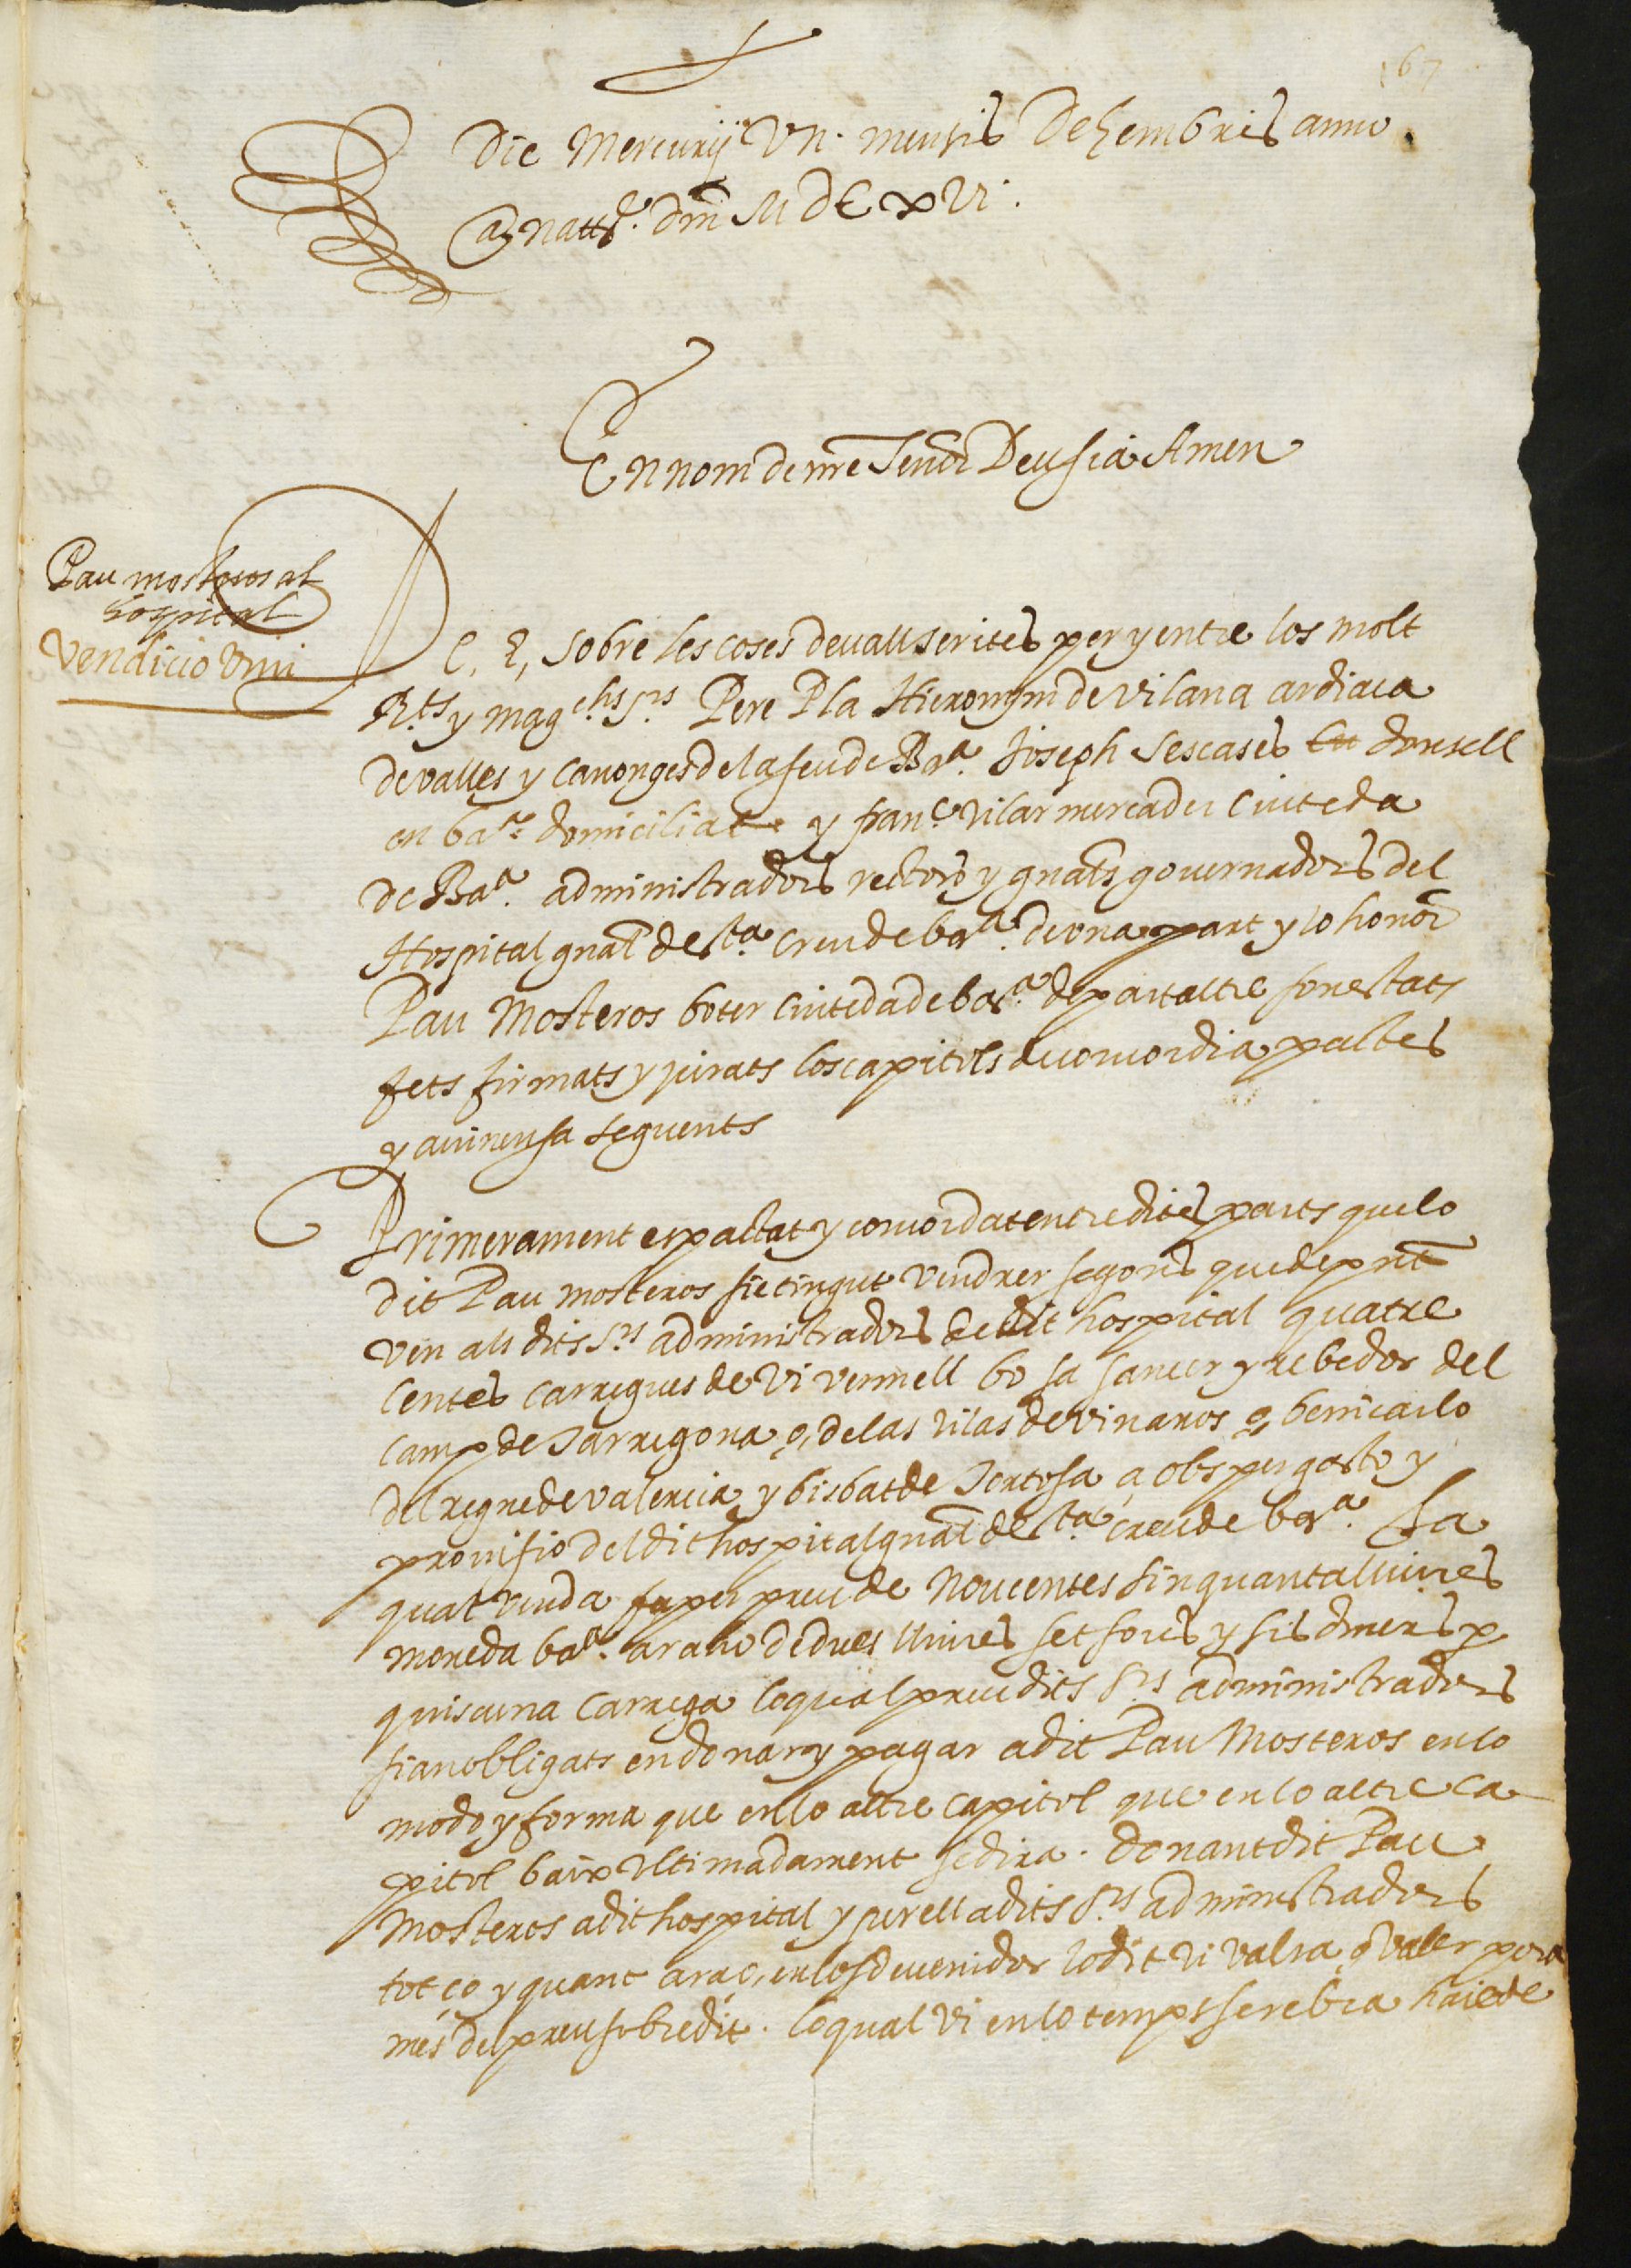 167
Die Mercurij Vn. mensis Dezembris anno
a natte. dni M d C x Vi.
En nom de nre Senor Deu sia Amen
Pau mosteros al
hospital
Vendicio vini
De, E, sobre les coses devall scrites per y entre los molt
R.ts y mag.chs s.rs Pere Pla Hieronym de Vilana ardiaca
de valles y canonges de la seu de Bar.a Joseph Sescases donsell
en bar.a domiciliat y fran.c Vilar mercader Ciuteda
de Bar.a administradors rectors y gnals governadors del
Hospital gnal de s.ta Creu de bar.a de vna part y lo honor
Pau Mosteros boter Ciuteda de bar.a de part altre son estats
fets firmats y jurats los capitols de concordia pactes
y avinensa seguents
Primerament es pactat y concordat entre dites parts que lo
dit Pau mosteros sie tingut vendrer segons que de pnt
ven als dits s.rs administradors de dit hospital quatre
centes carregues de Vi vermell bo sa sancer y rebedor del
camp de Tarregona o, de las vilas de vinaros o, benicarlo
del regne de valencia y bisbat de Tortosa a obs per gasto y
provisio del dit hospital gnal de s.ta creu de bar.a La
qual venda fa per preu de Noucentes sinquanta lliures
moneda bar.a a rao de dues lliures set sous y sis diners p
quiscuna Carrega lo qual preu dits s.rs administradors
sian obligats en donar y pagar a dit Pau Mosteros en lo
modo y forma que en lo altre capitol que en lo altre ca
pitol baix vltimadament se dira. donant dit Pau
Mosteros a dit hospital y per ell a dits s.rs administradors
tot ço y quant ara o, en lo sdevenidor lo dit vi valra o valer pora
mes del preu sobredit. Lo qual Vi en lo temps se rebra haie de